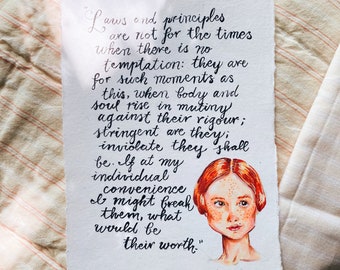 "Laws and principles
are not for the times
when there is no
temptation: they are
for such moments as
this, when body and
soul rise in mutiny
against their rigour;
stringent are they;
inviolate they shall
be. If at my
individual
convenience
I might break
them, what
would be
their worth."